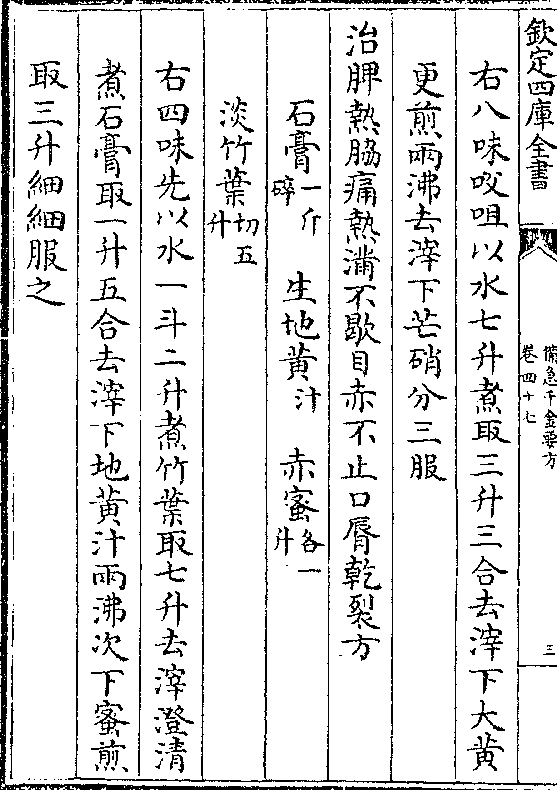 欽定四庫全書
備急千金要方
卷四十七
三
右八味㕮咀以水七升煮取三升三合去滓下大黄
更煎兩沸去滓下芒硝分三服
治脾熱脇痛熱滿不歇目赤不止口脣乾裂方
石膏一斤碎 生地黄汁 赤蜜各一升
淡竹葉切五升
右四味先以水一斗二升煮竹葉取七升去滓澄清
煮石膏取一升五合去滓下地黄汁兩沸次下蜜煎
取三升細細服之